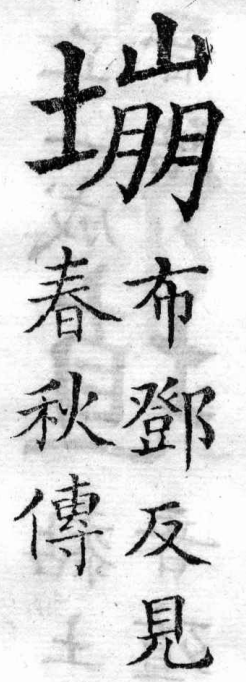 塴
布鄧反見
春秋傳